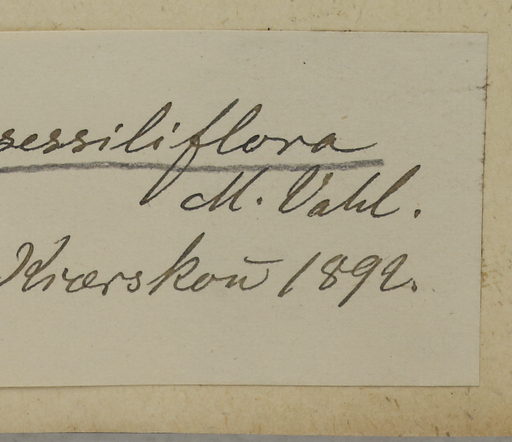 sessiliflora
M. Vahl.
Kiærskou 1892.